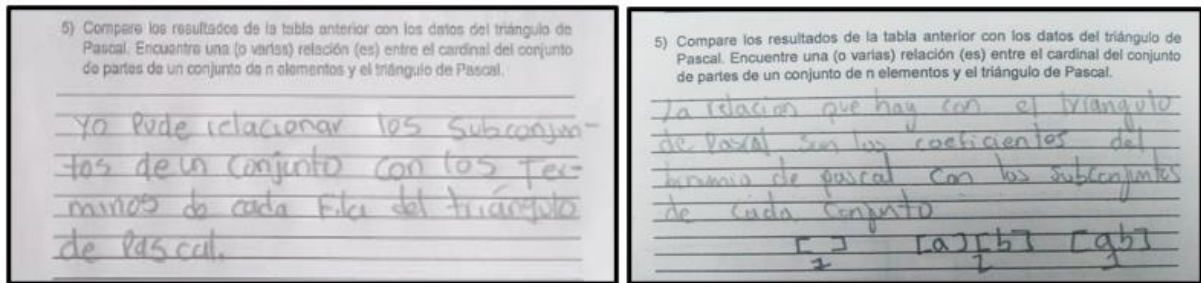 5) Compare los resultados de la tabla anterior con los datos del triángulo de
Pascal. Encuentre una (o varias) relación (es) entre el cardinal del conjunto
de partes de un conjunto de n elementos y el triángulo de Pascal.
Yo Pude relacionar los Subconjun-
tos de un Conjunto con los Ter-
minos de cada Fila del triángulo
de Pascal.
5) Compare los resultados de la tabla anterior con los datos del triángulo de
Pascal. Encuentre una (o varias) relación (es) entre el cardinal del conjunto
de partes de un conjunto de n elementos y el triángulo de Pascal.
La relacion que hay con el triangulo
de Pascal son los coeficientes del
binomio de pascal con los subconjuntos
de cada conjunto
[ ] [a] [b] [ab]
1 2 1